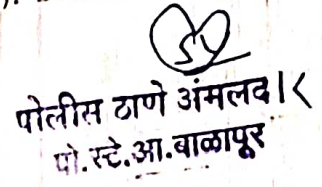 पोलीस ठाणे अंमलदार
पो.स्टे.आ.बाळापूर